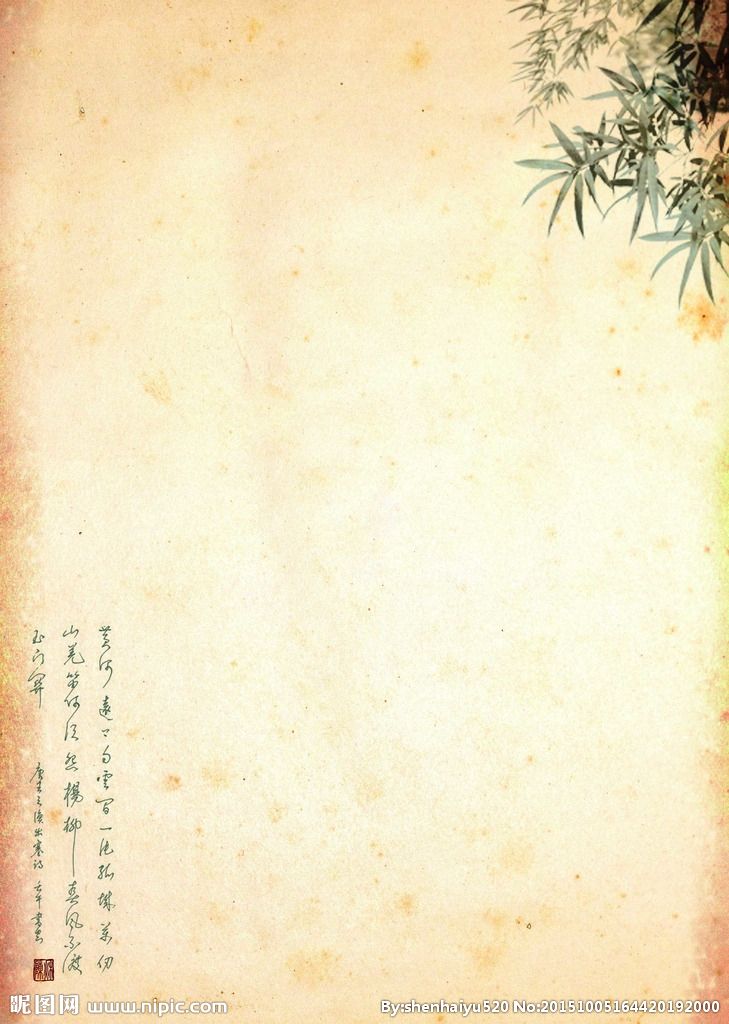 黄河遠上白雲间一片孤城萬仞
山羌笛何須怨楊柳春風不渡
玉门關
唐王之渙出塞詩 壬午
昵图网 www.nipic.com
By:shenhaiyu520 No:20151005164420192000